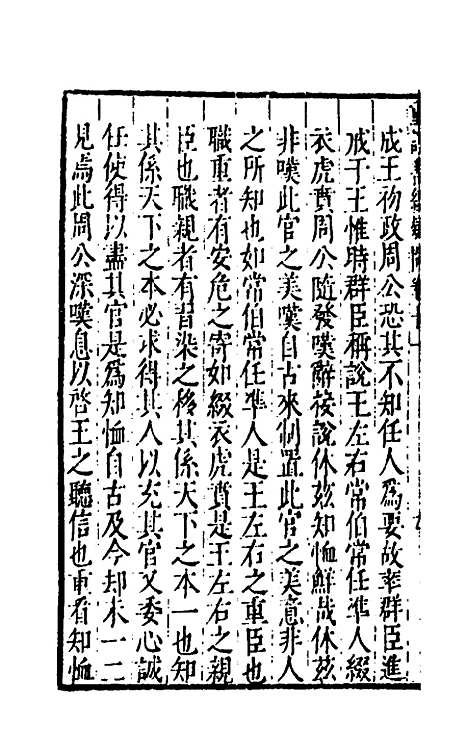 成王初政周公恐其不知任人爲要故率群臣進
戒于王惟時群臣稱說王左右常伯常任準人綴
衣虎賁周公隨發嘆辭按說休茲知恤鮮哉休茲
非嘆此官之美嘆自古來制置此官之美意非人
之所知也如常伯常任準人是王左右之重臣也
職重者有安危之寄如綴衣虎賁是王左右之親
臣也職親者有習染之移其係天下之本一也知
其係天下之本必求得其人以充其官又委心誠
任使得以盡其官是爲知恤自古及今却未一二
見焉此周公深嘆息以啓王之聽信也重看知恤